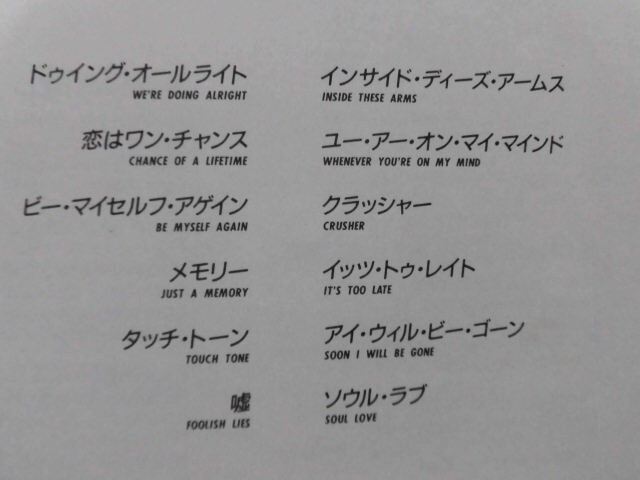 ドゥイング・オールライト
WE'RE DOING ALRIGHT
恋はワン・チャンス
CHANCE OF A LIFETIME
ビー・マイセルフ・アゲイン
BE MYSELF AGAIN
メモリー
JUST A MEMORY
タッチ・トーン
TOUCH TONE
嘘
FOOLISH LIES
インサイド・ディーズ・アームス
INSIDE THESE ARMS
ユー・アー・オン・マイ・マインド
WHENEVER YOU'RE ON MY MIND
クラッシャー
CRUSHER
イッツ・トゥ・レイト
IT'S TOO LATE
アイ・ウィル・ビー・ゴーン
SOON I WILL BE GONE
ソウル・ラブ
SOUL LOVE